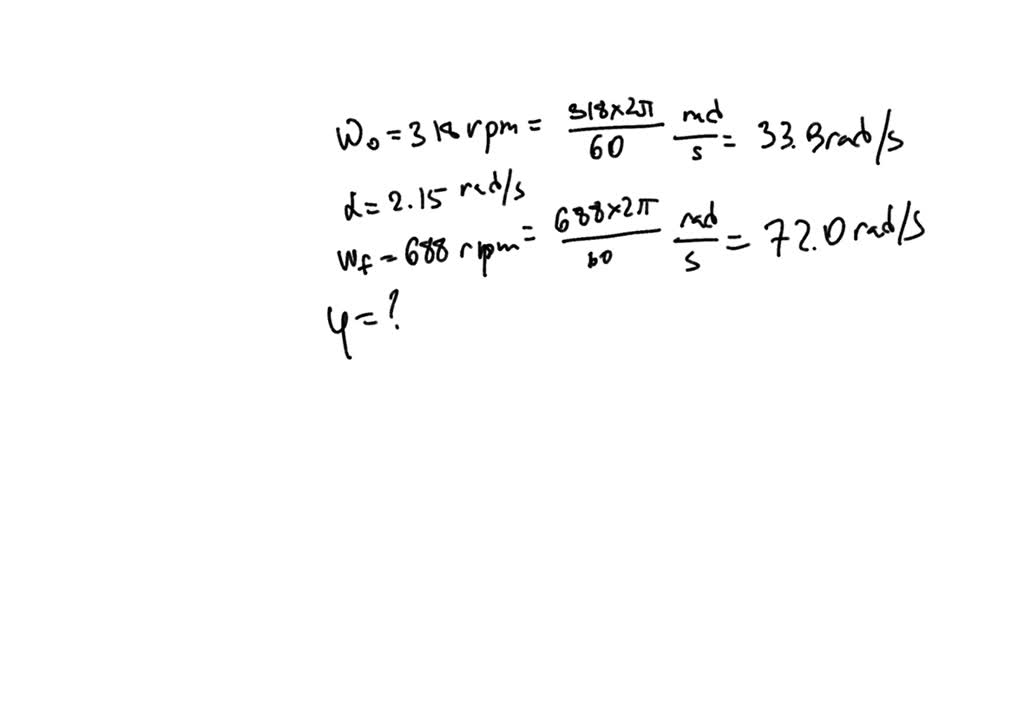 ω₀ = 318 rpm = 318×2π/60 rad/s = 33.3 rad/s
α = 2.15 rad/s
ωf = 688 rpm = 688×2π/60 rad/s = 72.0 rad/s
φ = ?